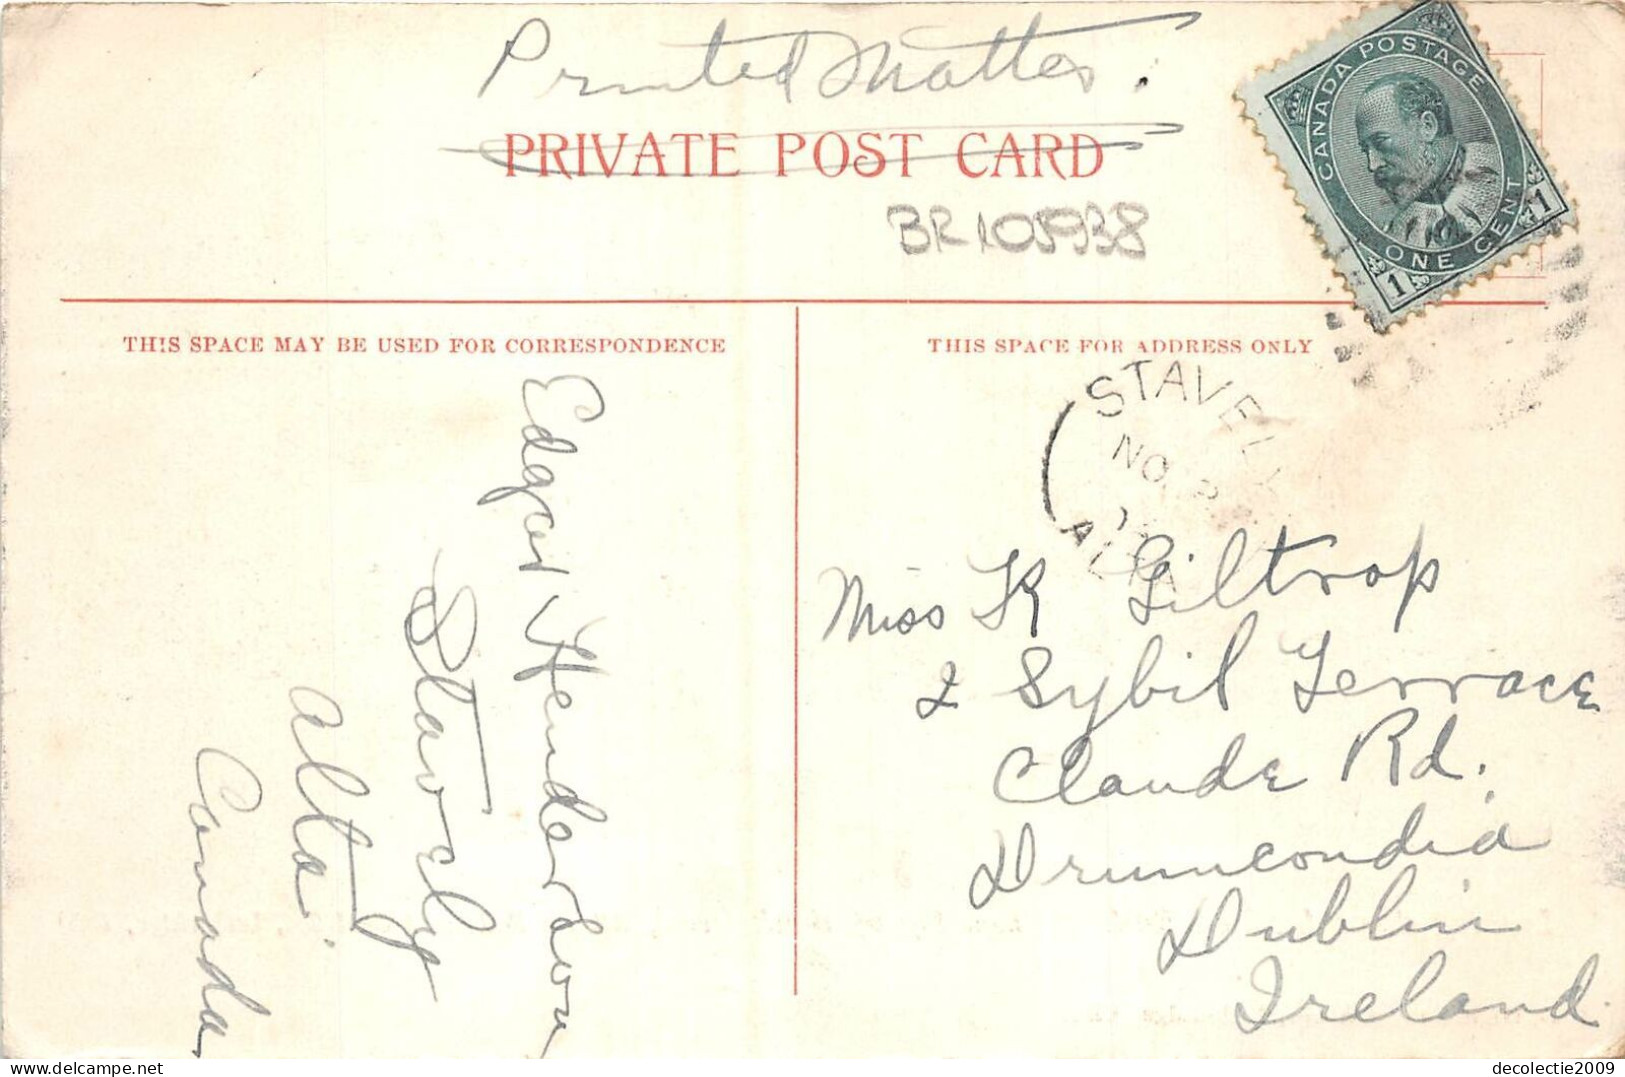 Printed Matter.
PRIVATE POST CARD
BR105938
CANADA POSTAGE
ONE CENT
1 1
THIS SPACE MAY BE USED FOR CORRESPONDENCE
THIS SPACE FOR ADDRESS ONLY
STAVELY
NO
ALTA
Edgar Henderson
Stavely
Alta
Canada
Miss K Giltrop
2 Sybil Terrace
Claude Rd.
Drumcondia
Dublin
Ireland.
decolectie2009